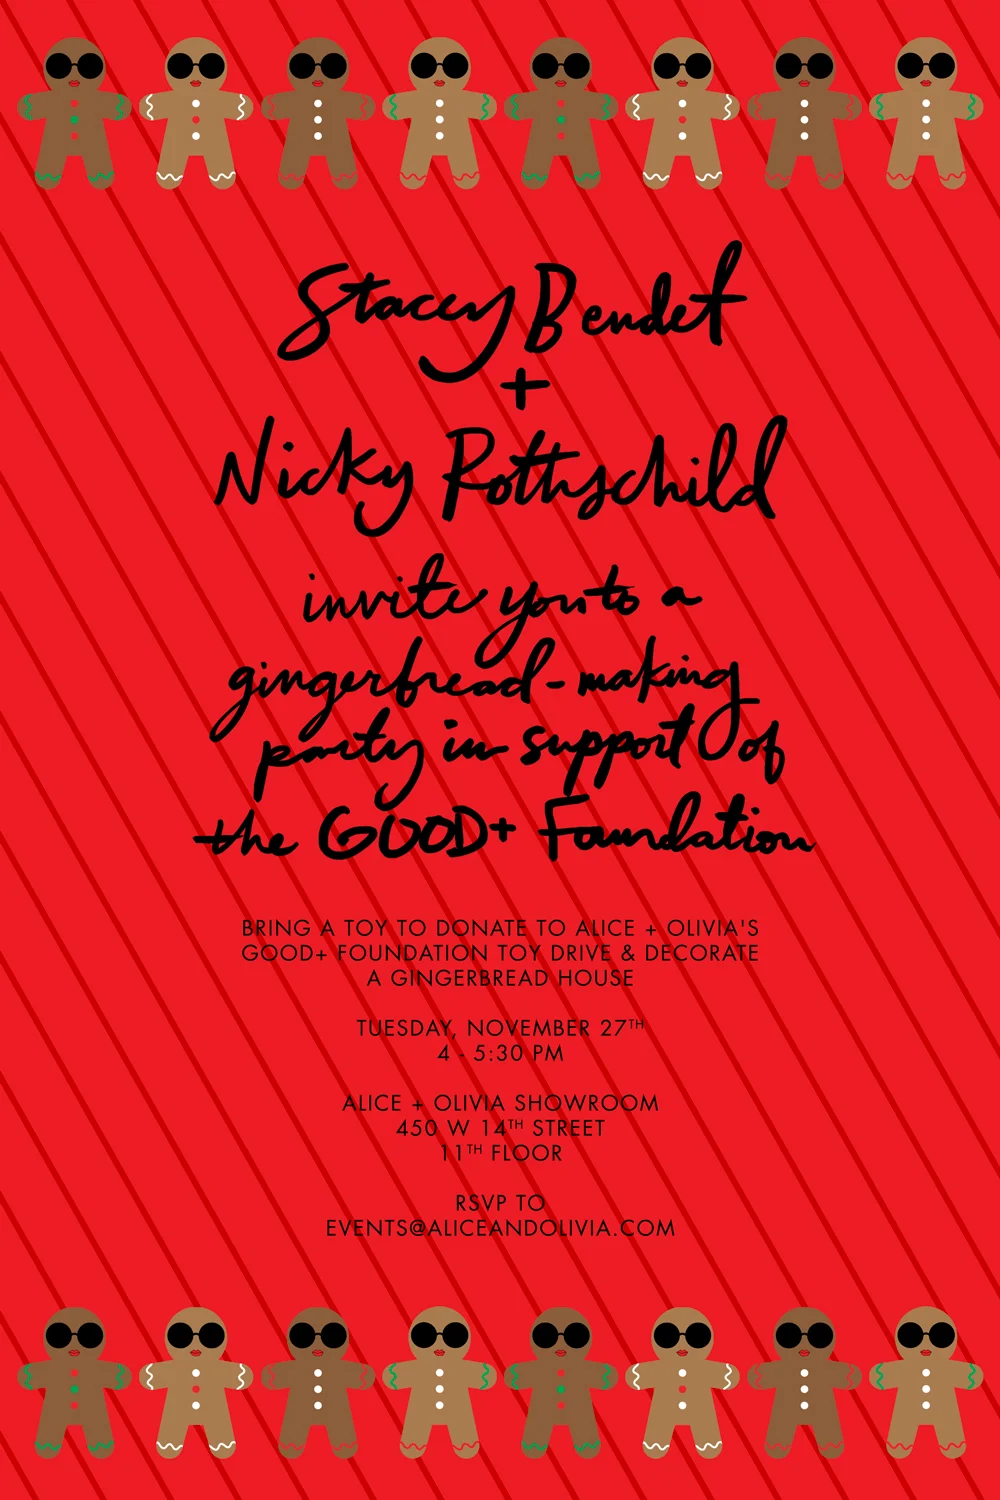 Stacey Bendet
+
Nicky Rothschild
invite you to a
gingerbread-making
party in support of
the GOOD+ Foundation
BRING A TOY TO DONATE TO ALICE + OLIVIA'S
GOOD+ FOUNDATION TOY DRIVE & DECORATE
A GINGERBREAD HOUSE
TUESDAY, NOVEMBER 27TH
4 - 5:30 PM
ALICE + OLIVIA SHOWROOM
450 W 14TH STREET
11TH FLOOR
RSVP TO
EVENTS@ALICEANDOLIVIA.COM